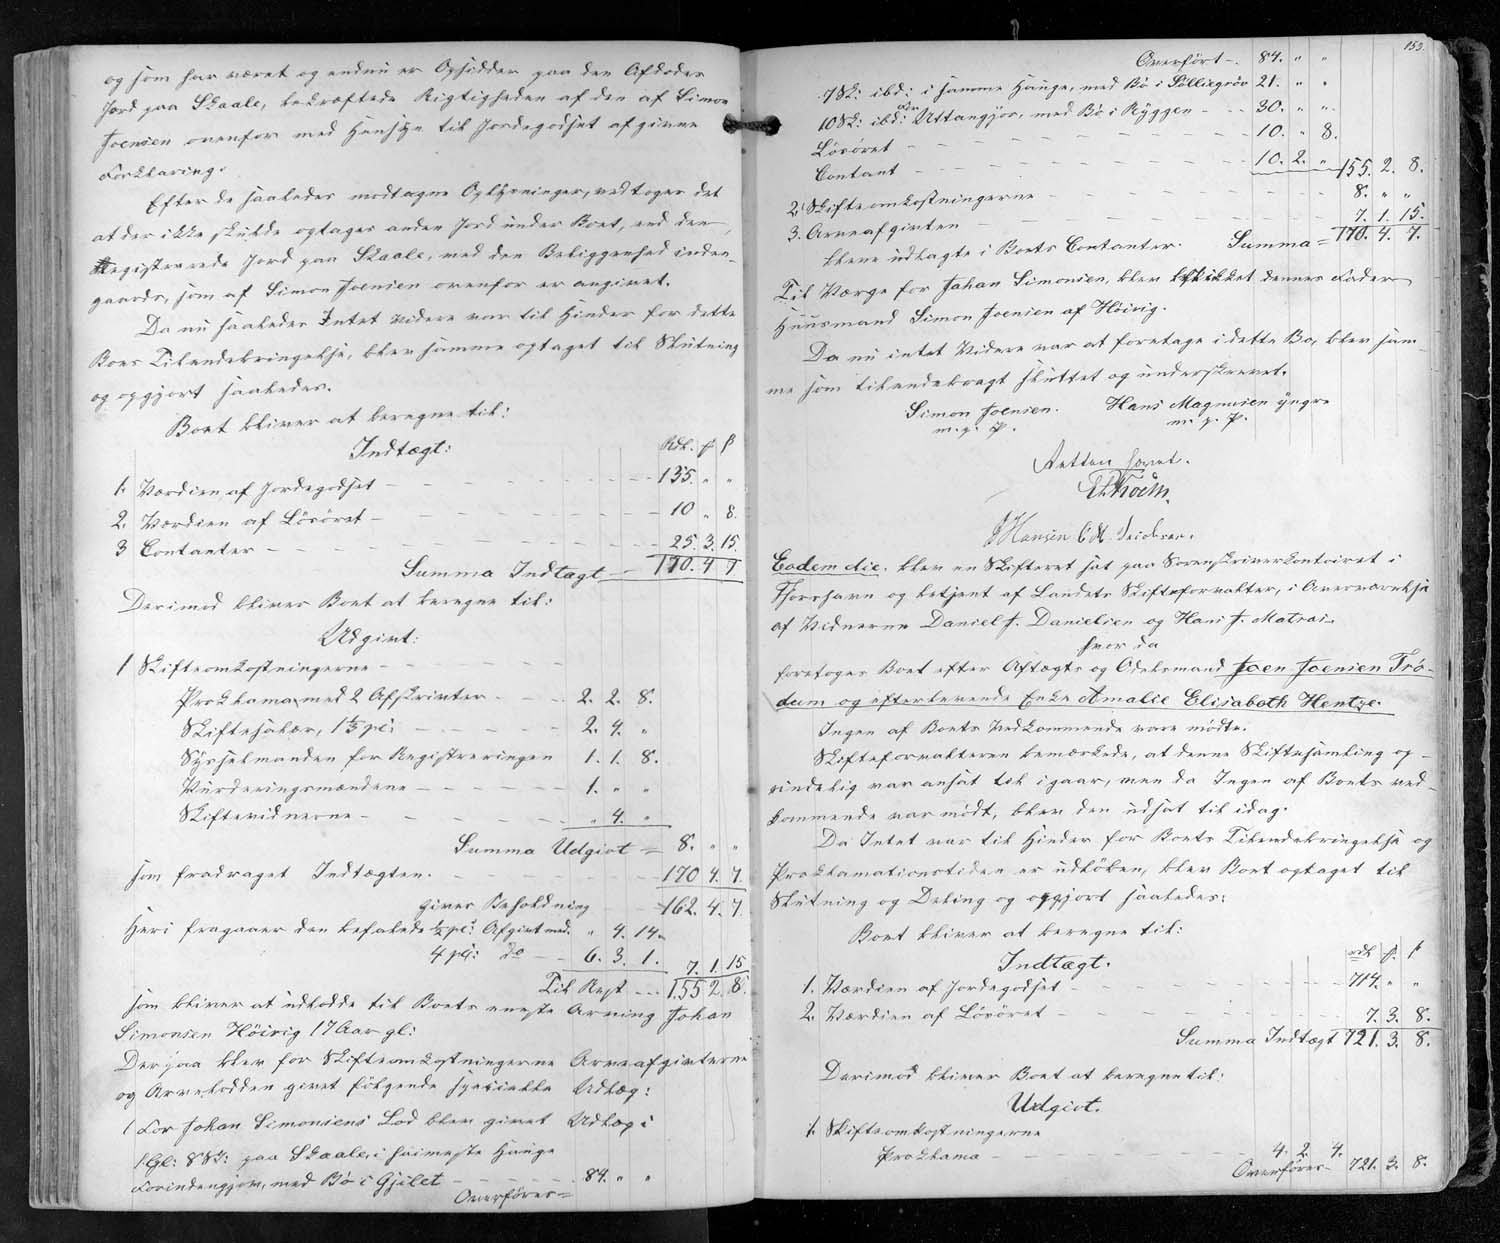 og som har været og endnu er Opsidder paa den Afdødes
Jord paa Skaale, bekræftede Rigtigheden af den af Simon
Joensen ovenfor med Hensyn til Jordegodset afgivne
Forklaring.
Efter de saaledes modtagne Oplysninger, vedtoges det
at der ikke skulde optages anden Jord under Boet, end den
Registrerede Jord paa Skaale, med den Bebyggenhed inden-
gaards, som af Simon Joensen ovenfor er angivet.
Da nu saaledes Intet videre var til Hinder for dette
Boes Tilendebringelse, blev samme optaget til Slutning
og opgjort saaledes.
Boet bliver at beregne til:
Indtægt: Rdl. ℳ ß
1. Værdien af Jordegodset - 135. " "
2. Værdien af Lösöret - 10 " 8.
3 Contanter - 25. 3. 15.
Summa Indtægt - 170. 4 7
Derimod bliver Boet at beregne til:
Udgivt:
1 Skifteomkostningerne -
Proklama med 2 Afskrivter - 2. 2. 8.
Skiftesalær, 1⅓ pC: - 2. 4. "
Sysselmanden for Registreringen 1. 1. 8.
Vurderingsmændene - 1. " "
Skiftevidnerne - " 4. "
Summa Udgivt = 8. " "
som fradraget Indtægten. - 170 4. 7.
giver Beholdning 162. 4. 7.
Heri fragaaer den befalede ½ pC: Afgivt med. " 4. 14.
4 pC: Do - 6. 3. 1. 7. 1. 15
Til Rest - 155 2. 8.
som bliver at udlodde til Boets eneste Arving Johan
Simonsen Höivig 17 Aar gl:
Derpaa blev for Skifteomkostningerne Arveafgivterne
og Arvelodden givet fölgende specielle Udlæg:
1 For Johan Simonsens Lod blev givet Udlæg i
1 Gl: 8 Sk: paa Skaale, i Haimeste Hauge
Forindengjov, med Bö i Gjilet - 84. " "
Overföres =
153.
Overfört - 84. " "
7 Sk: ibd: i samme Hauge, med Bö i Söltiegröv 21. " "
10 Sk: ibd: Uttangjov, med Bö i Ryggen - 30. " "
Lösöret - 10. " 8.
Contant - 10. 2. " 155. 2. 8.
2. Skifteomkostningerne - 8. " "
3. Arveafgivten - 7. 1. 15.
bleve udlagte i Boets Contanter. Summa = 170. 4. 7.
Til Værge for Johan Simonsen, blev beskikket dennes Fader
Huusmand Simon Joensen af Höivig.
Da nu intet Videre var at foretage i dette Bo, blev sam-
me som tilendebragt sluttet og underskrevet.
Simon Joensen. Hans Magnusen yngre
m. p. P. m. p. P.
Retten hævet.
J Hansen
Eodem die. blev en Skifteret sat paa Sorenskriverkontoiret i
Thorshavn og betjent af Landets Skifteforvalter, i Overværelse
af Vidnerne Daniel J. Danielsen og Hans J. Matras.
hvor da
foretoges Boet efter Aftægts og Odelsmand Joen Joensen Trö-
dum og efterlevende Enke Amalie Elisabeth Hentze.
Ingen af Boets Vedkommende vare mödte.
Skifteforvalteren bemærkede, at denne Skiftesamling op-
rindelig var ansat til igaar, men da Ingen af Boets ved-
kommende var mödt, blev den udsat til idag.
Da Intet var til Hinder for Boets Tilendebringelse og
Proklamationstiden er udlöben, blev Boet optaget til
Slutning og Deling og opgjort saaledes:
Boet bliver at beregne til:
Indtægt. rdl ℳ ß
1. Værdien af Jordegodset - 714. " "
2. Værdien af Lösöret - 7. 3. 8.
Summa Indtægt 721. 3. 8.
Derimod bliver Boet at beregne til:
Udgivt.
1. Skifteomkostningerne
Proklama - 4. 2. 4.
Overföres - 721. 3. 8.